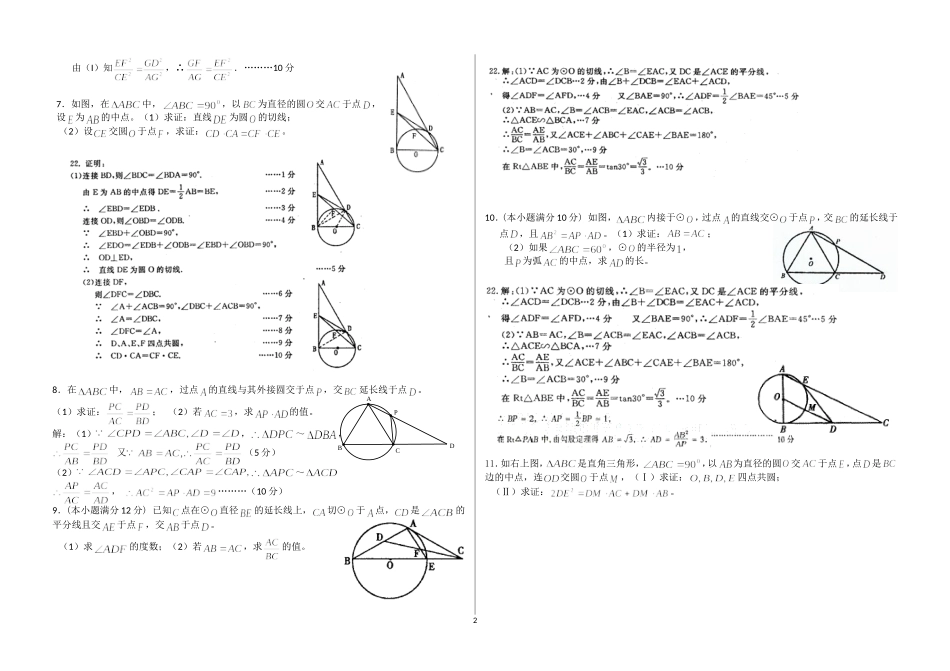 由(Ⅰ)知EF²/CE²=GD²/AG²，∴GF/AG=EF²/CE²．………10 分
7．如图，在△ABC中，∠ABC=90°，以BC为直径的圆O交AC于点D，
设E为AB的中点。（1）求证：直线DE为圆O的切线；
（2）设CE交圆O于点F，求证：CD·CA=CF·CE。
22. 证明：
(1)连接 BD,则∠BDC=∠BDA=90°. ……1 分
由 E 为 AB 的中点得 DE=1/2AB=BE, ……2 分
∴ ∠EBD=∠EDB. ……3 分
连接 OD,则∠OBD=∠ODB. ……4 分
∵ ∠EBD+∠OBD=90°,
∴ ∠EDO=∠EDB+∠ODB=∠EBD+∠OBD=90°,
∴ OD⊥ED,
∴ 直线 DE 为圆 O 的切线. ……5 分
(2)连接 DF,
则∠DFC=∠DBC. ……6 分
∵ ∠A+∠ACB=90°,∠DBC+∠ACB=90°,
∴ ∠A=∠DBC, ……7 分
∴ ∠DFC=∠A, ……8 分
∴ D、A、E、F 四点共圆, ……9 分
∴ CD·CA=CF·CE. ……10 分
A
E
F
D
B
O
C
A
E
D
B
O
C
A
E
F
D
B
O
C
8．在△ABC中，AB=AC，过点A的直线与其外接圆交于点P，交BC延长线于点D。
（1）求证：PC/AC=PD/BD；（2）若AC=3，求AP·AD的值。
解：（1）∵∠CPD=∠ABC,∠D=∠D,∴△DPC～△DBA
∴PC/AB=PD/BD 又∵AB=AC,∴PC/AC=PD/BD（5 分）
（2）∵∠ACD=∠APC,∠CAP=∠CAP,∴△APC～△ACD
∴AP/AC=AC/AD，∴AC²=AP·AD=9………（10 分）
A
P
B
C
D
9．(本小题满分 12 分) 已知C点在⊙O直径BE的延长线上，CA切⊙O于A点，CD是∠ACB的
平分线且交AE于点F，交AB于点D。
（1）求∠ADF的度数；（2）若AB=AC，求AC/BC的值。
A
D
F
B
O
E
C
22.解：(1)∵AC 为⊙O 的切线,∴∠B=∠EAC,又 DC 是∠ACE 的平分线,
∴∠ACD=∠DCB…2 分,由∠B+∠DCB=∠EAC+∠ACD,
得∠ADF=∠AFD,…4 分 又∠BAE=90°,∴∠ADF=1/2∠BAE=45°…5 分
(2)∵AB=AC,∠B=∠ACB=∠EAC,∠ACB=∠ACB,
∴△ACE∽△BCA,…7 分
∴AC/BC=AE/AB,又∠ACE+∠ABC+∠CAE+∠BAE=180°,
∴∠B=∠ACB=30°,…9 分
在 Rt△ABE 中,AC/BC=AE/AB=tan30°=√3/3。…10 分
10．(本小题满分 10 分）如图，△ABC内接于⊙O，过点A的直线交⊙O于点P，交BC的延长线于
点D，且AB²=AP·AD。（1）求证：AB=AC；
（2）如果∠ABC=60°，⊙O的半径为1，
且P为弧AC的中点，求AD的长。
A
P
O
B
C
D
22.解：(1)∵AC 为⊙O 的切线,∴∠B=∠EAC,又 DC 是∠ACE 的平分线,
∴∠ACD=∠DCB…2 分,由∠B+∠DCB=∠EAC+∠ACD,
得∠ADF=∠AFD,…4 分 又∠BAE=90°,∴∠ADF=1/2∠BAE=45°…5 分
(2)∵AB=AC,∠B=∠ACB=∠EAC,∠ACB=∠ACB,
∴△ACE∽△BCA,…7 分
∴AC/BC=AE/AB,又∠ACE+∠ABC+∠CAE+∠BAE=180°,
∴∠B=∠ACB=30°,…9 分
在 Rt△ABE 中,AC/BC=AE/AB=tan30°=√3/3。…10 分
∴BP=2, ∴AP=1/2BP=1,
在Rt△PAB 中,由勾股定理得 AB=√3, ∴AD=AB²/AP=3. ………… 10 分
A
E
O
M
B
D
C
11．如右上图，△ABC是直角三角形，∠ABC=90°，以AB为直径的圆O交AC于点E，点D是BC
边的中点，连OD交圆O于点M，（Ⅰ）求证：O,B,D,E四点共圆；
（Ⅱ）求证：2DE²=DM·AC+DM·AB。
2